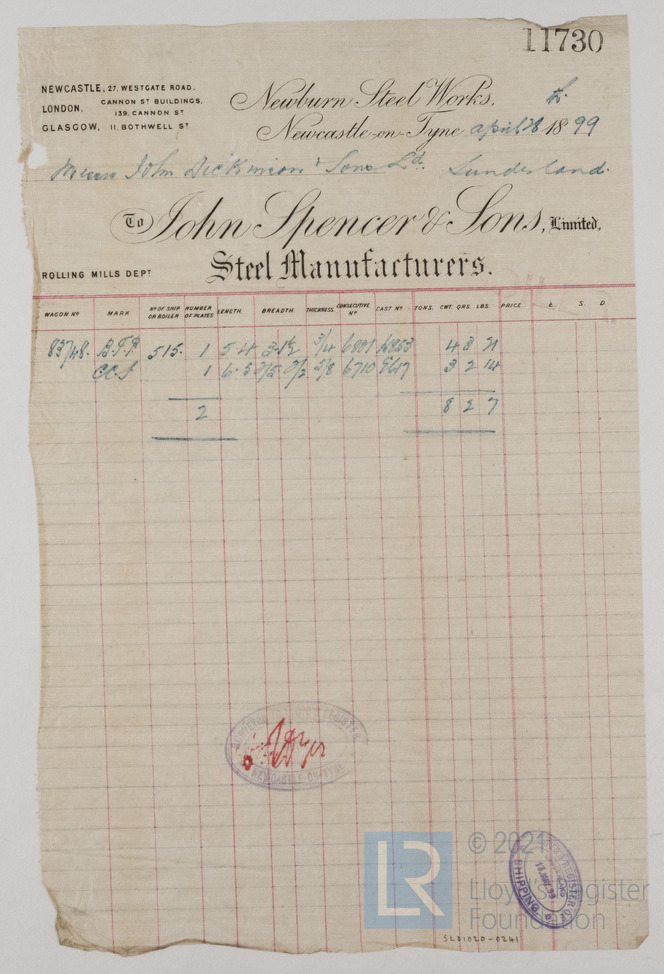 11730
NEWCASTLE, 27, WESTGATE ROAD.
LONDON, CANNON ST BUILDINGS, 139, CANNON ST
GLASGOW, 11, BOTHWELL ST
Newburn Steel Works,
Newcastle-on-Tyne april 28 1899
Messrs John Dickinson & Sons Ld. Sunderland.
To John Spencer & Sons, Limited,
Steel Manufacturers.
ROLLING MILLS DEPT
WAGON No MARK No OF SHIP OR BOILER NUMBER OF PLATES LENGTH BREADTH THICKNESS CONSECUTIVE No CAST No TONS. CWT QRS LBS PRICE £. S. D
83748. B.F.P. 515. 1 5.4 3.1½ 3/4 6801 6853 4 3 21
C.C.S 1 6.3 5/8 6710 5617 3 2 14
2 8 2 7
NEWCASTLE-ON-TYNE
SHIPPING
© 2021
Lloyd's Register
Foundation
LR
SLD1020-0241